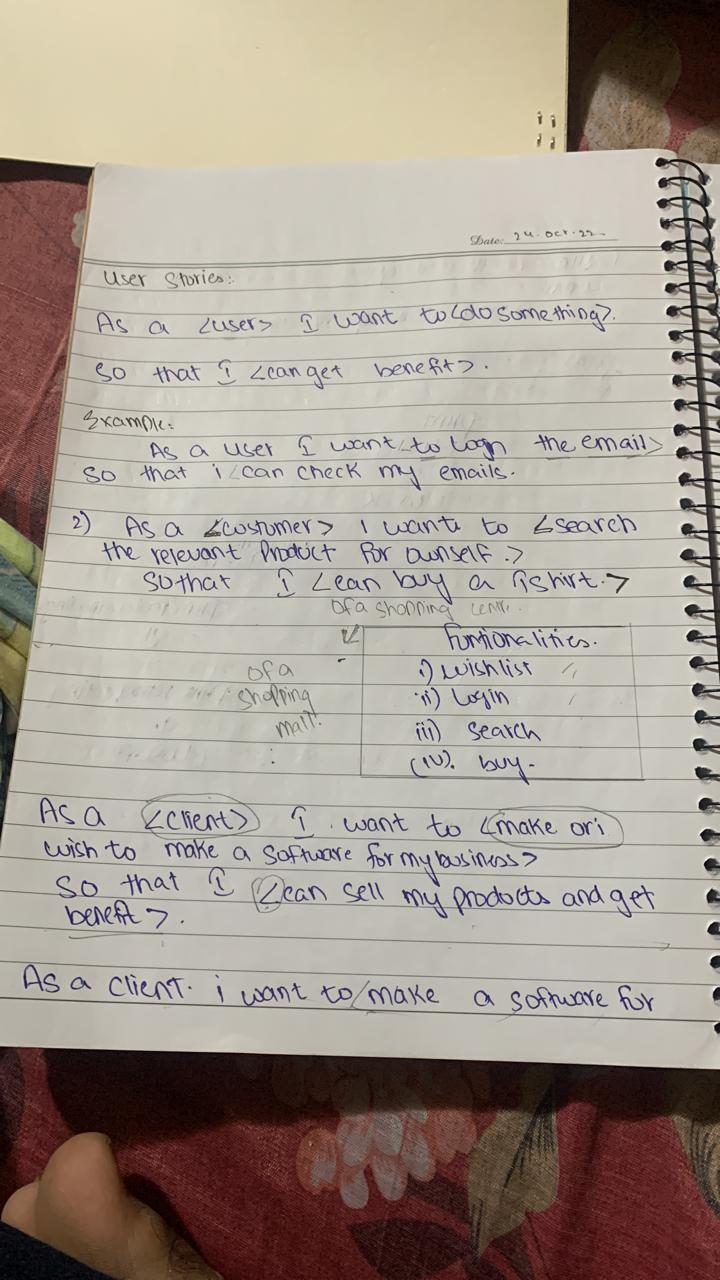 Date: 24. Oct. 22
User Stories:
As a <user> I want to <do something>.
so that I <can get benefit>.
Example:
As a user I want to login the email>
so that i can check my emails.
2) As a <custumer> I wants to <search
the relevant Product for ownself.>
so that I <can buy a Tshirt.>
Of a shopping centr.
Funtionalities.
i) wishlist
of a
shopping
mall.
ii) Login
iii) Search
(iv). buy.
As a <client> I want to <make or i
wish to make a software for my business>
So that I <can sell my products and get
benefit>.
As a client. i want to make a software for